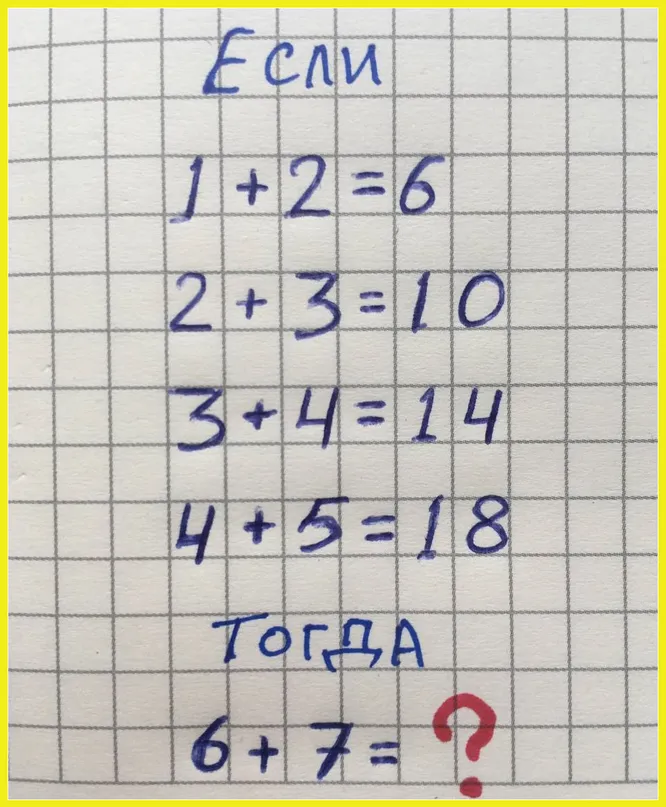 Если
1 + 2 = 6
2 + 3 = 10
3 + 4 = 14
4 + 5 = 18
Тогда
6 + 7 = ?